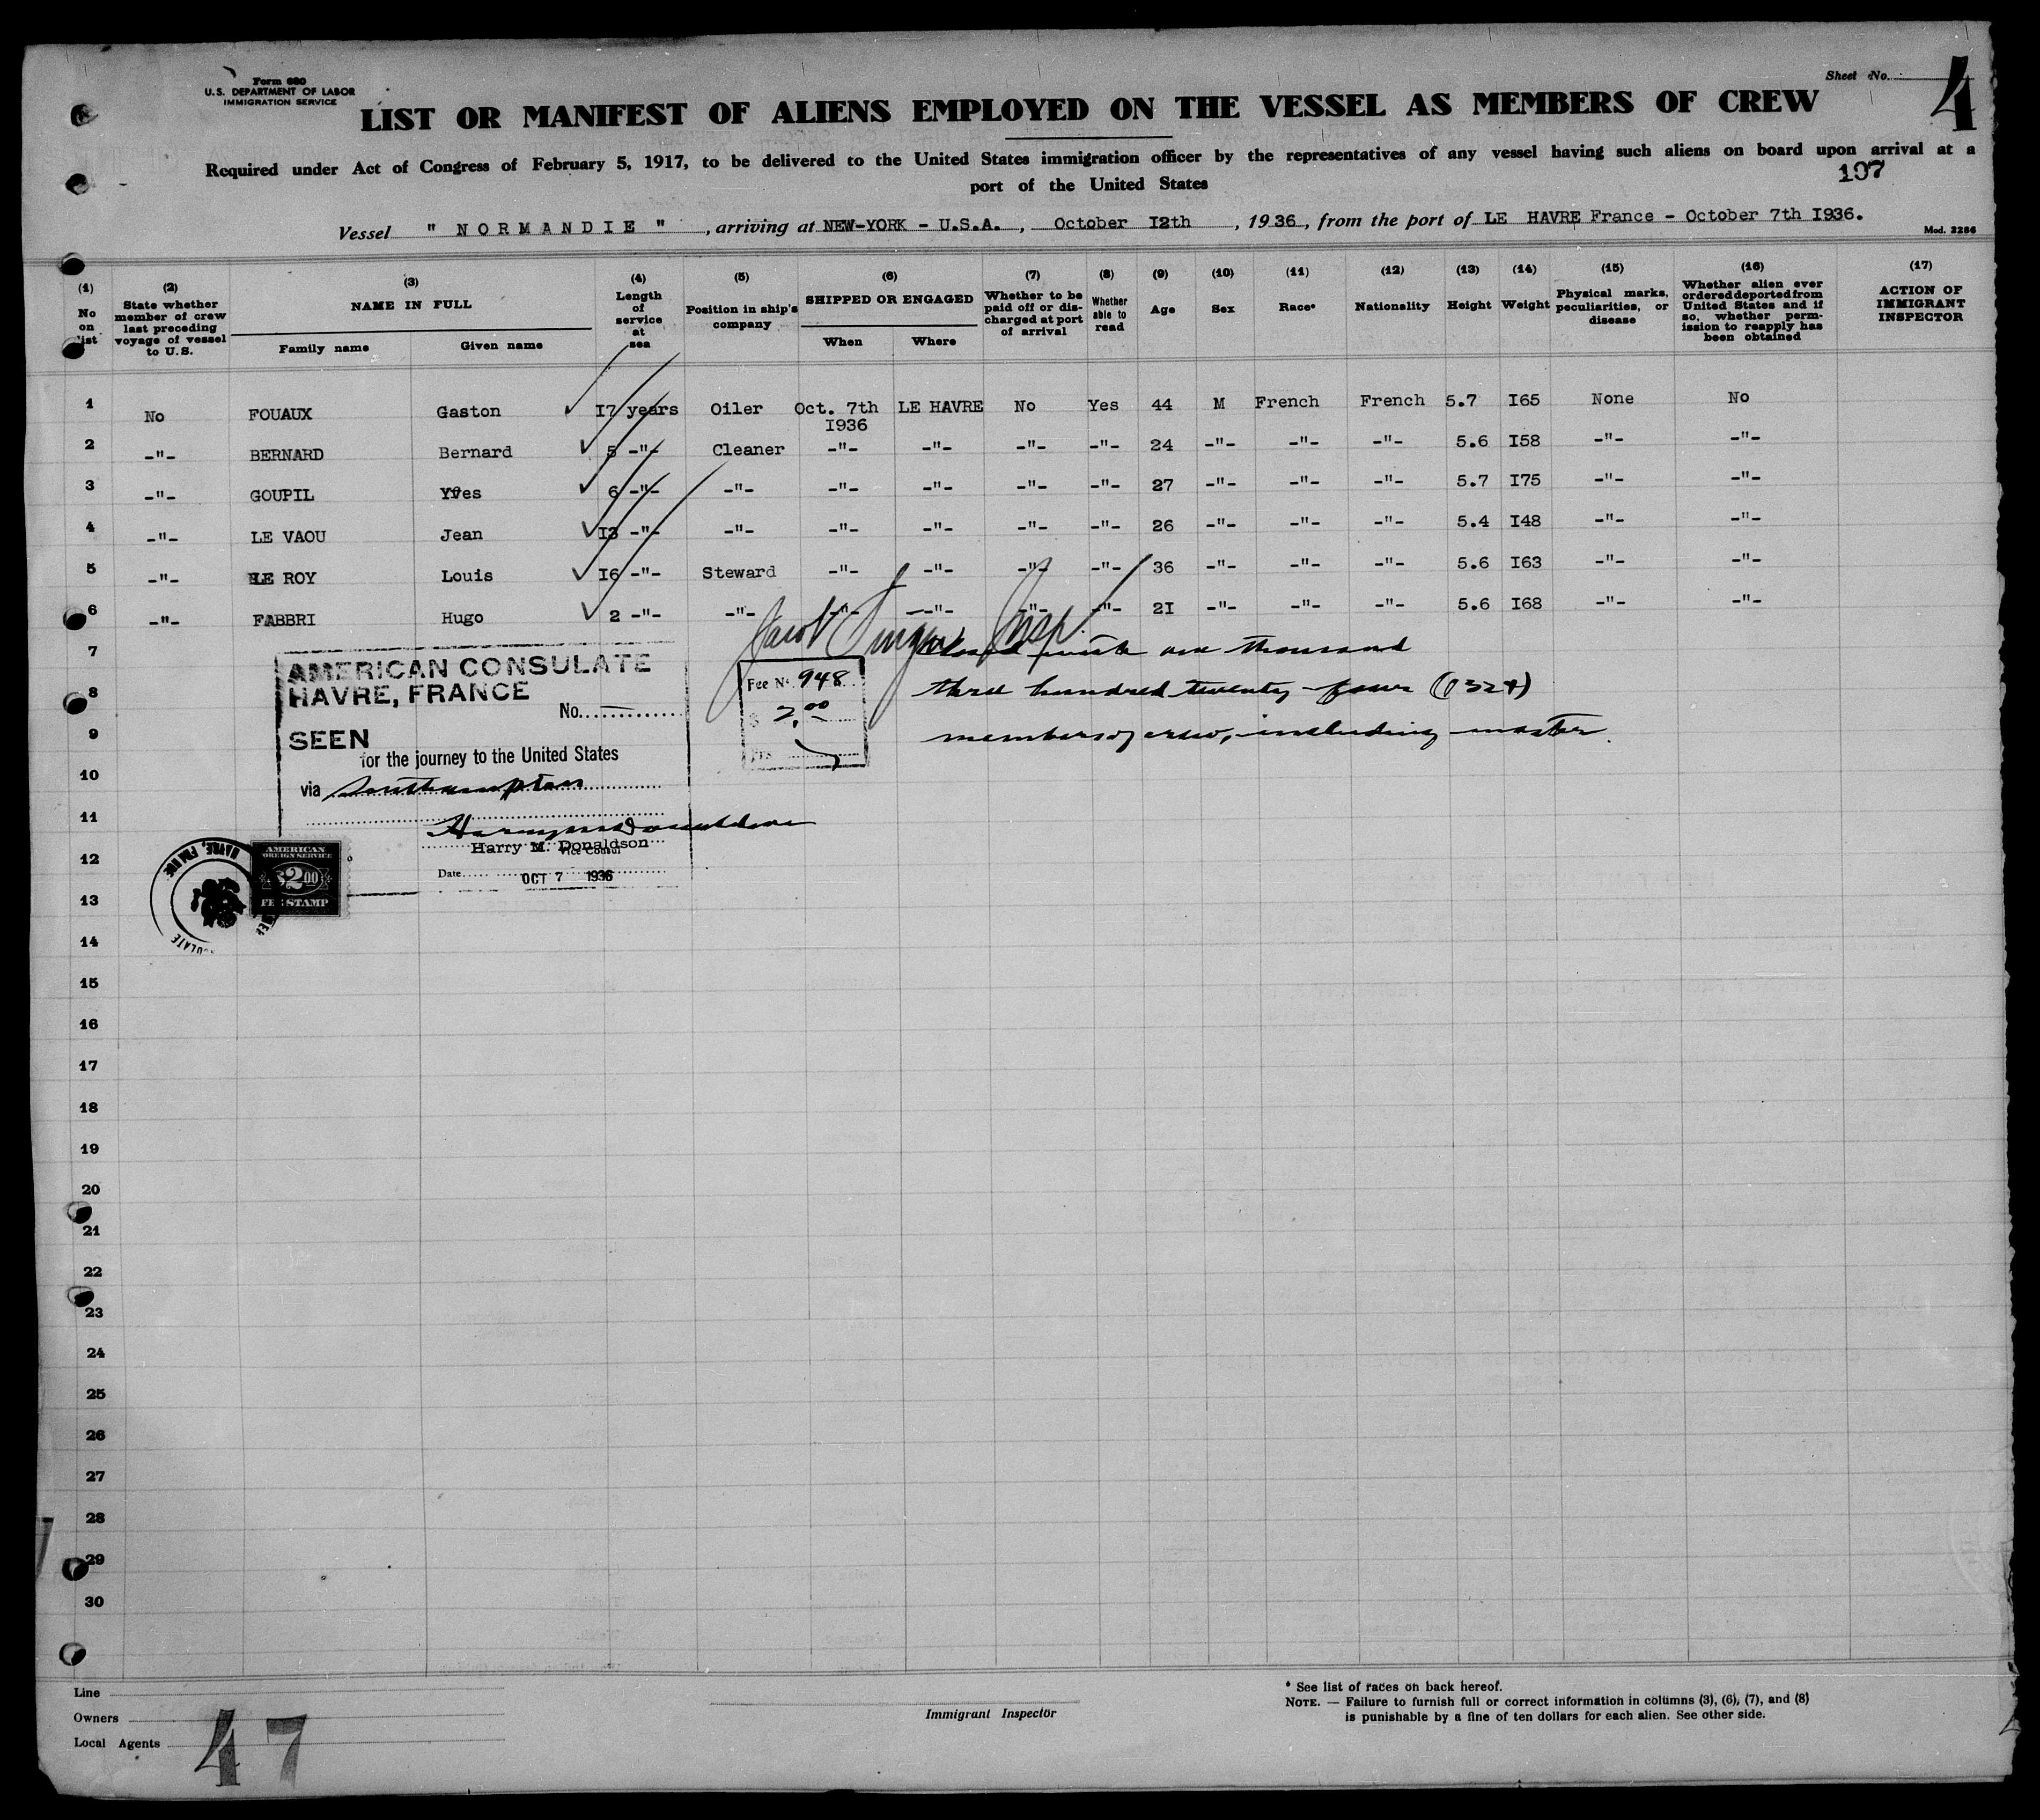 Form 680
U.S. DEPARTMENT OF LABOR
IMMIGRATION SERVICE
Sheet No. 4
LIST OR MANIFEST OF ALIENS EMPLOYED ON THE VESSEL AS MEMBERS OF CREW
Required under Act of Congress of February 5, 1917, to be delivered to the United States immigration officer by the representatives of any vessel having such aliens on board upon arrival at a
port of the United States
107
Vessel " NORMANDIE " , arriving at NEW-YORK - U.S.A. , October I2th , 1936 , from the port of LE HAVRE France - October 7th I936.
Mod. 2286
(1) No on list (2) State whether member of crew last preceding voyage of vessel to U.S. (3) NAME IN FULL Family name Given name (4) Length of service at sea (5) Position in ship's company (6) SHIPPED OR ENGAGED When Where (7) Whether to be paid off or discharged at port of arrival (8) Whether able to read (9) Age (10) Sex (11) Race* (12) Nationality (13) Height (14) Weight (15) Physical marks, peculiarities, or disease (16) Whether alien ever ordered deported from United States and if so, whether permission to reapply has been obtained (17) ACTION OF IMMIGRANT INSPECTOR
1 No FOUAUX Gaston I7 years Oiler Oct. 7th I936 LE HAVRE No Yes 44 M French French 5.7 I65 None No
2 -"- BERNARD Bernard 5 -"- Cleaner -"- -"- -"- -"- 24 -"- -"- -"- 5.6 I58 -"- -"-
3 -"- GOUPIL Yves 6 -"- -"- -"- -"- -"- -"- 27 -"- -"- -"- 5.7 I75 -"- -"-
4 -"- LE VAOU Jean I3 -"- -"- -"- -"- -"- -"- 26 -"- -"- -"- 5.4 I48 -"- -"-
5 -"- LE ROY Louis I6 -"- Steward -"- -"- -"- -"- 36 -"- -"- -"- 5.6 I63 -"- -"-
6 -"- FABBRI Hugo 2 -"- -"- -"- -"- -"- -"- 2I -"- -"- -"- 5.6 I68 -"- -"-
Jacob Insp.
7 with one thousand
8 three hundred twenty-four (1324)
9 members of crew, including master.
AMERICAN CONSULATE
HAVRE, FRANCE
No.
SEEN
for the journey to the United States
via Southampton
Harry M Donaldson
Harry M. Donaldson
Vice Consul
Date OCT 7 1936
Fee No. 948
$ 2.00
Frs
AMERICAN
FOREIGN SERVICE
$2.00
FEE STAMP
HAVRE, FRANCE
10
11
12
13
14
15
16
17
18
19
20
21
22
23
24
25
26
27
28
29
30
Line
Owners
Local Agents
47
Immigrant Inspector
* See list of races on back hereof.
NOTE. — Failure to furnish full or correct information in columns (3), (6), (7), and (8)
is punishable by a fine of ten dollars for each alien. See other side.